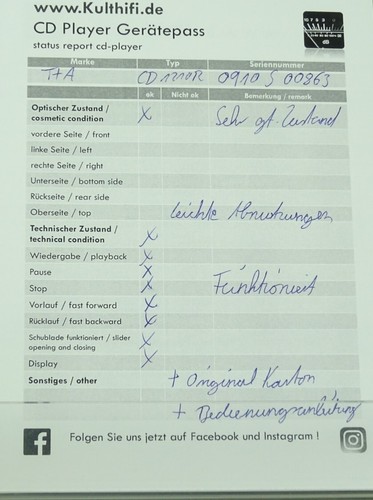 www.Kulthifi.de
CD Player Gerätepass
status report cd-player
Marke Typ Seriennummer
T+A CD 1210R 0910 S 00863
ok Nicht ok Bemerkung / remark
Optischer Zustand / cosmetic condition X Sehr gt. Zustand
vordere Seite / front
linke Seite / left
rechte Seite / right
Unterseite / bottom side
Rückseite / rear side
Oberseite / top leichte Abnutzungen
Technischer Zustand / technical condition X
Wiedergabe / playback X
Pause X
Stop X Funktioniert
Vorlauf / fast forward X
Rücklauf / fast backward X
Schublade funktioniert / slider opening and closing X
Display X
Sonstiges / other + Original Karton
+ Bedienungsanleitung
Folgen Sie uns jetzt auf Facebook und Instagram !